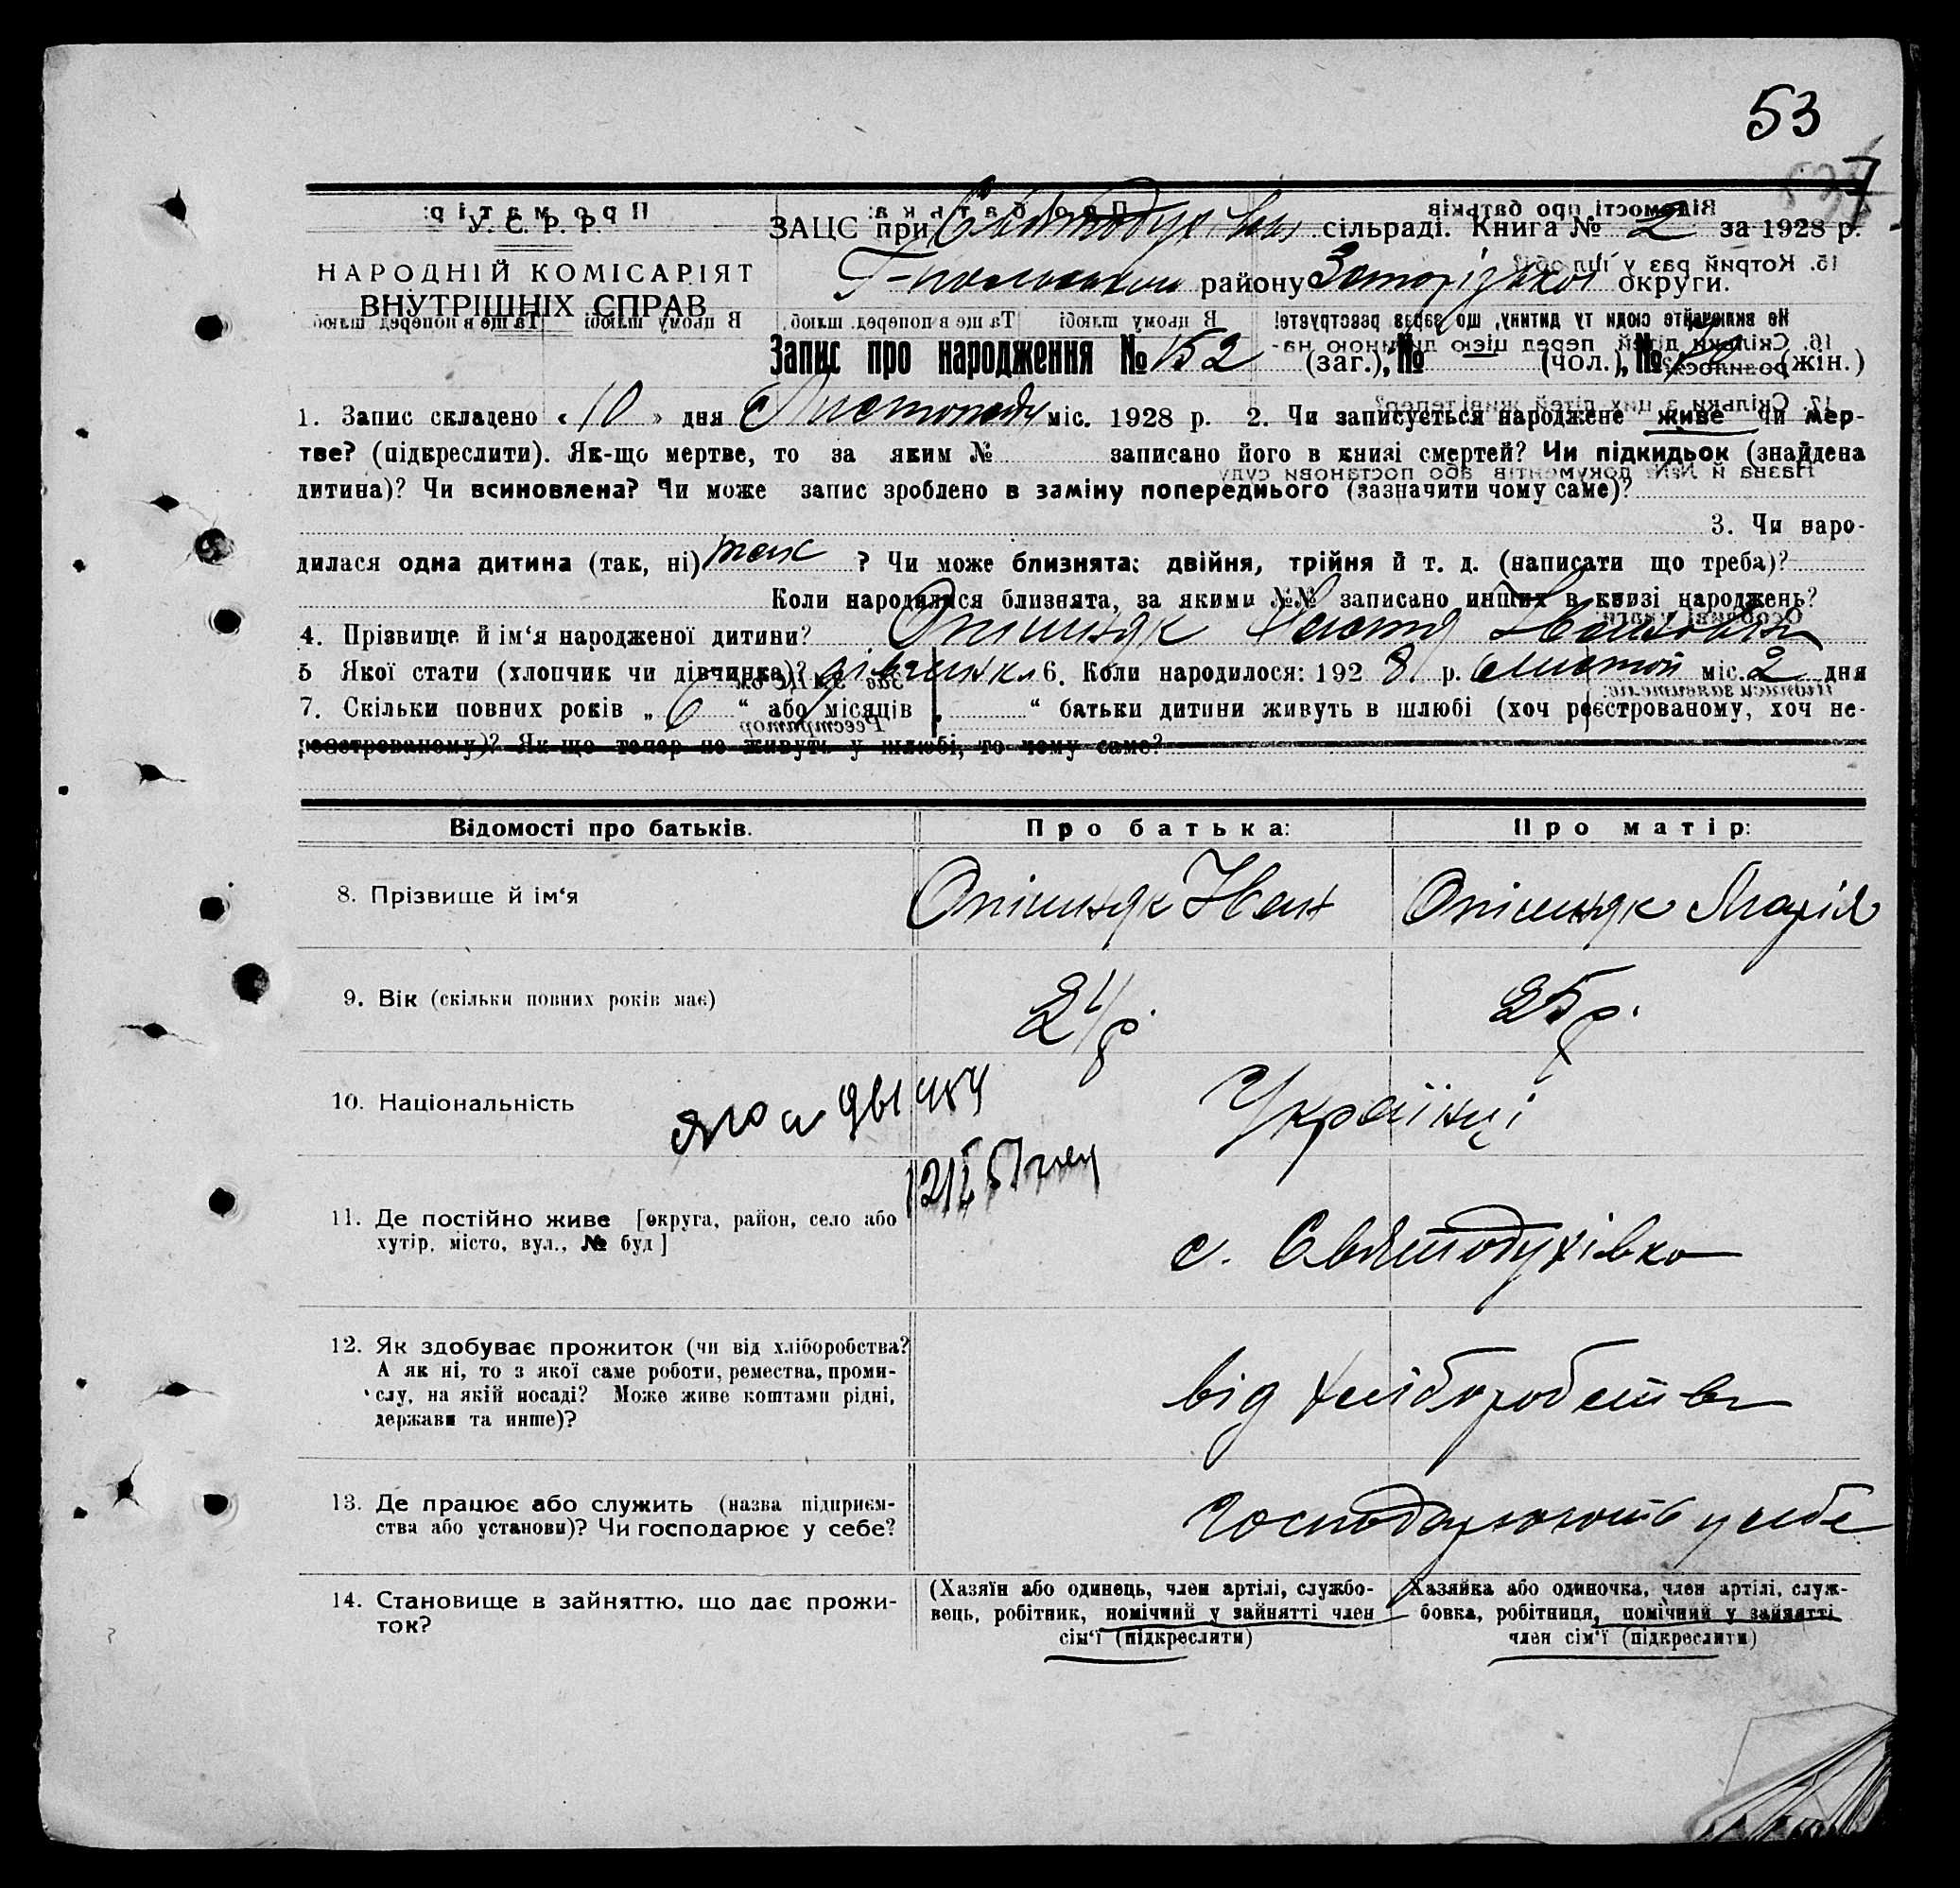 53
У. С. Р. Р.
НАРОДНІЙ КОМІСАРІЯТ
ВНУТРІШНІХ СПРАВ
ЗАЦС при сільраді. Книга № 2 за 1928 р.
району округи.
Запис про народження № 152 (заг.), № — (чол.), № (жін.)
1. Запис складено « 10 » дня Листопаду міс. 1928 р. 2. Чи записується народжене живе чи мер-
тве? (підкреслити). Як-що мертве, то за яким № записано його в книзі смертей? Чи підкидьок (знайдена
дитина)? Чи всиновлена? Чи може запис зроблено в заміну попереднього (зазначити чому саме)?
3. Чи наро-
дилася одна дитина (так, ні) так ? Чи може близнята: двійня, трійня й т. д. (написати що треба)?
Коли народилися близнята, за якими №№ записано инших в книзі народжень?
4. Прізвище й ім‘я народженої дитини? Опішняк
5 Якої стати (хлопчик чи дівчинка)? дівчинка 6. Коли народилося: 1928 р. листоп міс. 2 дня
7. Скільки повних років „ 6 “ або місяців „ “ батьки дитини живуть в шлюбі (хоч реєстрованому, хоч не-
реєстрованому)? Як що тепер не живуть у шлюбі, то чому саме?
Відомості про батьків. Про батька: Про матір:
8. Прізвище й ім‘я Опішняк Іван Опішняк Марія
9. Вік (скільки повних років має) 25 р.
10. Національність Українці
11. Де постійно живе [округа, район, село або
хутір, місто, вул., № буд] с. Святодухівка
12. Як здобуває прожиток (чи від хліборобства?
А як ні, то з якої саме роботи, ремества, проми-
слу, на якій посаді? Може живе коштами рідні,
держави та инше)? від хліборобства
13. Де працює або служить (назва підприєм-
ства або установи)? Чи господарює у себе? Господарюють у себе
14. Становище в зайняттю, що дає прожи-
ток?
(Хазяїн або одинець, член артілі, службо-
вець, робітник, помічний у зайнятті член
сім‘ї (підкреслити)
Хазяйка або одиночка, член артілі, служ-
бовка, робітниця, помічний у зайнятті
член сім‘ї (підкреслити)